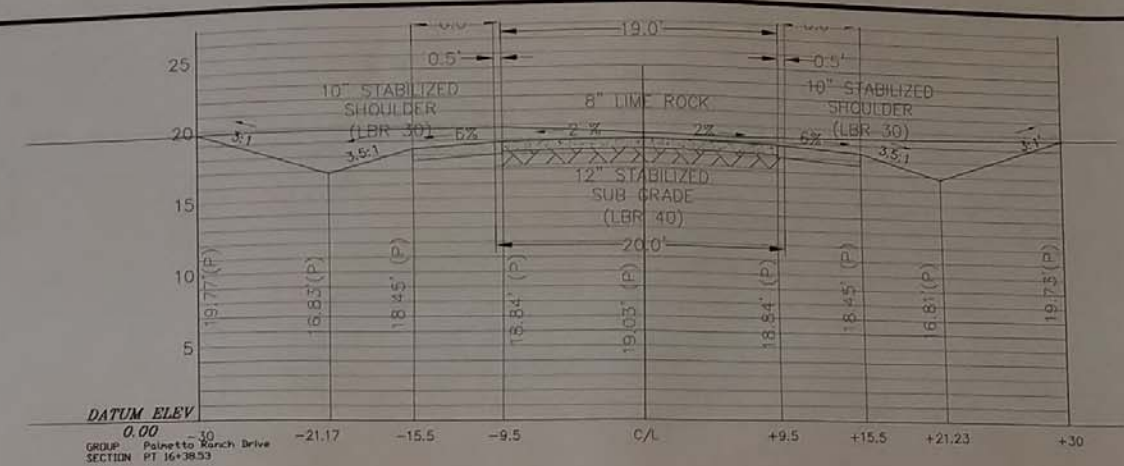 19.0'
25
0.5'
0.5'
10" STABILIZED
SHOULDER
(LBR 30)
8" LIME ROCK
10" STABILIZED
SHOULDER
(LBR 30)
20
3:1
3.5:1
6%
2 %
2%
6%
3.5:1
3:1
12" STABILIZED
SUB GRADE
(LBR 40)
15
20.0'
10
19.77'(P)
16.83'(P)
18.45' (P)
18.84' (P)
19.03' (P)
18.84' (P)
18.45' (P)
16.81'(P)
19.73'(P)
5
DATUM ELEV
0.00
-30
-21.17
-15.5
-9.5
C/L
+9.5
+15.5
+21.23
+30
GROUP Palmetto Ranch Drive
SECTION PT 16+38.53